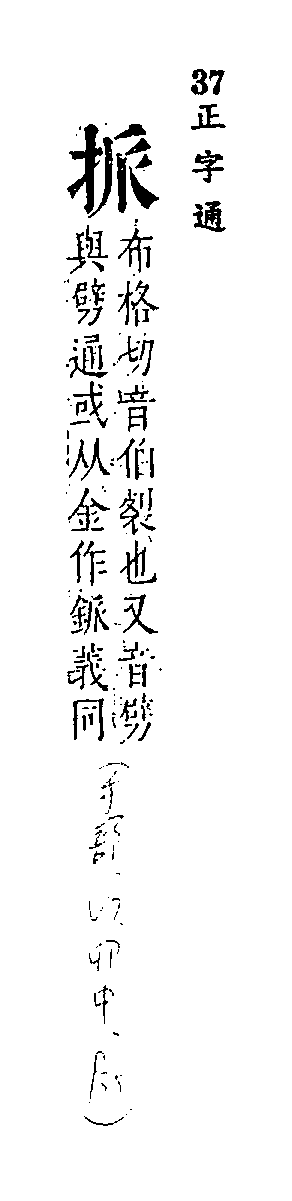 37正字通
布格切音伯裂也又音劈
與劈通或从金作釽義同
(手部、卯中、)